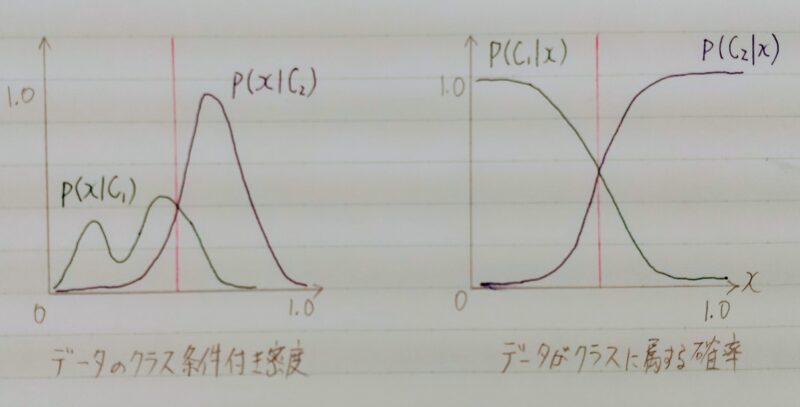 1.0
P(x|C₂)
P(x|C₁)
0
1.0
データのクラス条件付き密度
P(C₁|x)
P(C₂|x)
1.0
0
1.0
x
データがクラスに属する確率